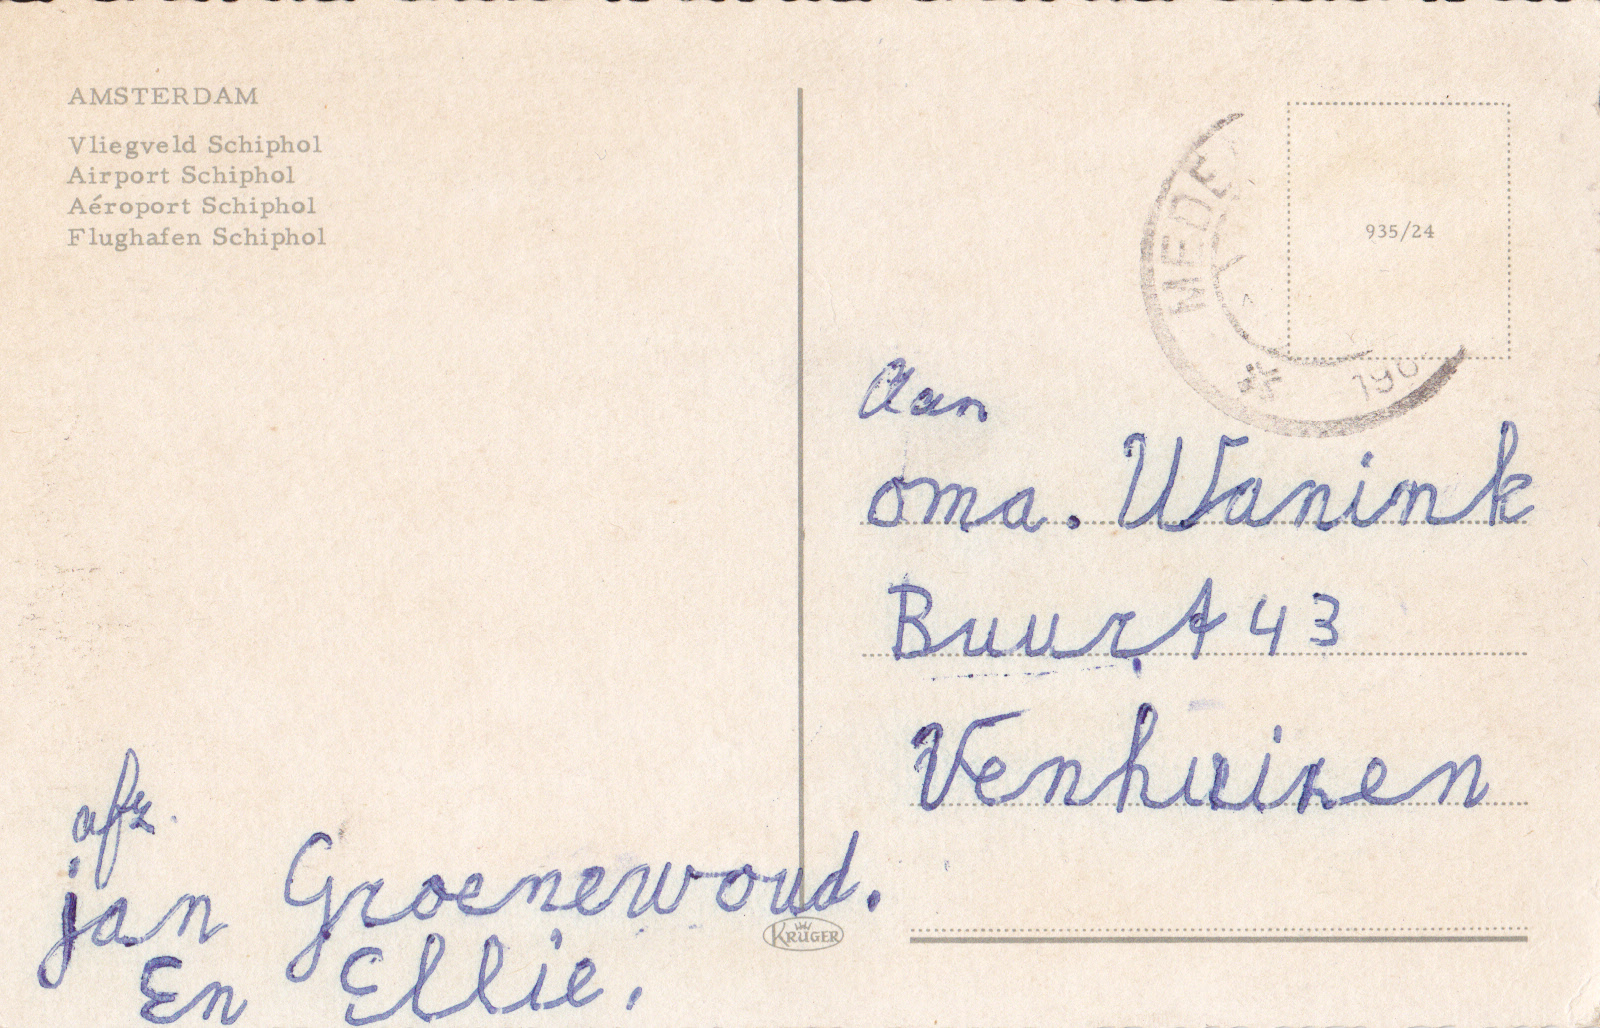 AMSTERDAM
Vliegveld Schiphol
Airport Schiphol
Aéroport Schiphol
Flughafen Schiphol
935/24
MEDE
Aan
oma. Wanink
Buurt 43
Venhuizen
afz.
jan Groenewoud.
En Ellie.
KRÜGER